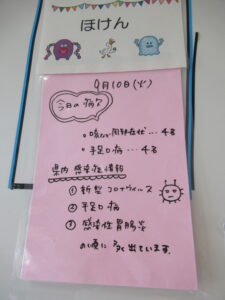 ほけん
9月10日(火)
今日の病欠
。咳などの周辺症状…4名
。手足口病…4名
県内 感染症情報
① 新型コロナウイルス
② 手足口病
③ 感染性胃腸炎
の順に多く出ています。